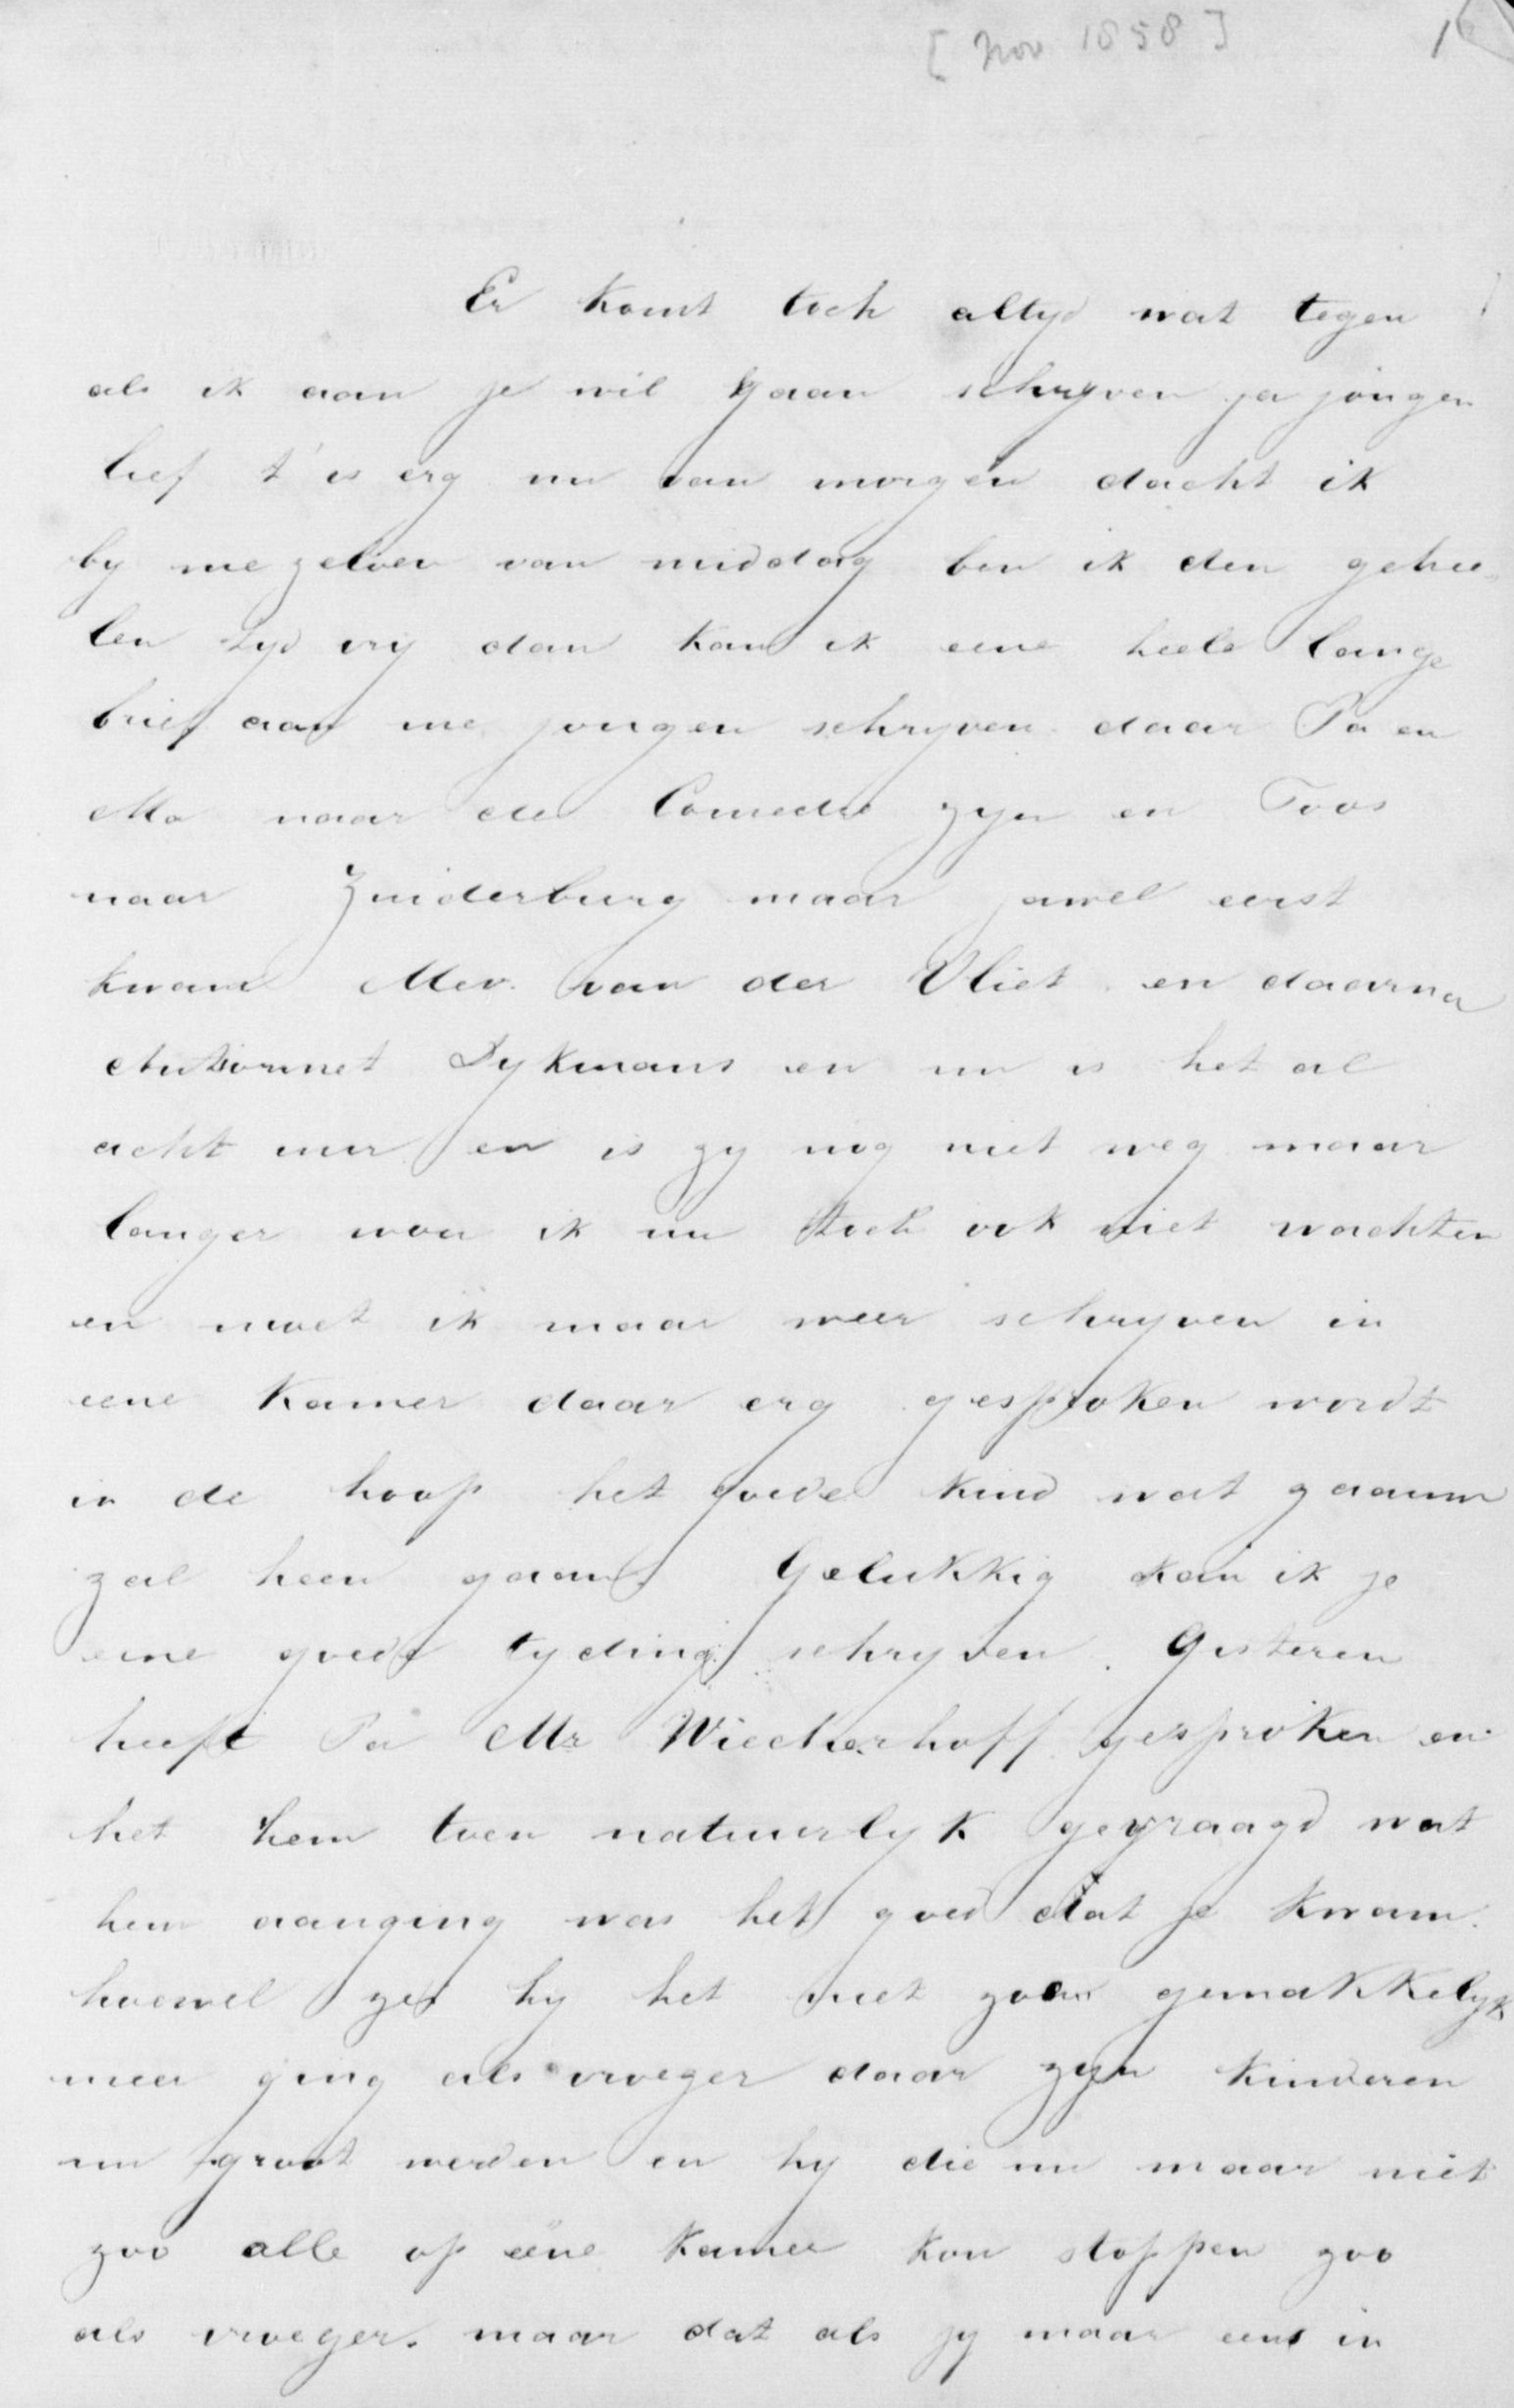 [Nov 1858]
1
Er komt toch altyd wat tegen
als ik aan je wil gaan schryven ja jongen
lief t' is erg nu van morgen dacht ik
by me zelven van middag ben ik den gehee-
len tyd vry dan kan ik eene heele lange
brief aan me jongen schryven daar Pa en
Ma naar de Comedie zyn en Toos
naar Zuiderburg maar jawel eerst
kwam Mev. van der Vliet en daarna
Dykmans en nu is het al
acht uur en is zy nog niet weg maar
langer wou ik nu toch ook niet wachten
en moet ik maar weer schryven in
eene kamer daar erg gesproken wordt
in de hoop het goede kind wat gaauw
zal heen gaan. Gelukkig kan ik je
eene goede tyding schryven. Gisteren
heeft Pa Mr Wieckerhoff gesproken en
het hem toen natuurlyk gevraagd wat
hem aanging was het goed dat je kwam.
hoewel zei hy het niet zoo gemakkelyk
meer ging als vroeger daar zyn kinderen
nu groot werden en hy die nu maar niet
zoo alle op eene kamer kon stoppen zoo
als vroeger. maar dat als jy maar eens in